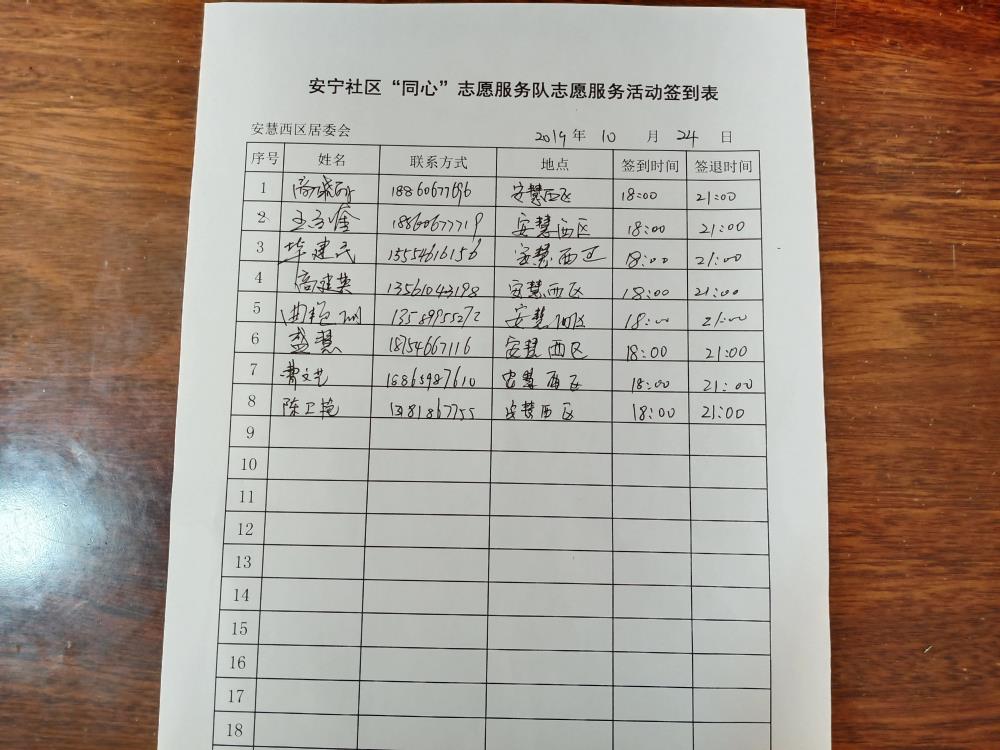 安宁社区“同心”志愿服务队志愿服务活动签到表
安慧西区居委会 2019年 10 月 24 日
序号 姓名 联系方式 地点 签到时间 签退时间
1 18860677696 安慧西区 18:00 21:00
2 18860677719 安慧西区 18:00 21:00
3 毕建民 15554616156 安慧西区 18:00 21:00
4 13561043198 安慧西区 18:00 21:00
5 13589955272 安慧西区 18:00 21:00
6 盛慧 18754667116 安慧西区 18:00 21:00
7 曹文艺 18865987610 安慧西区 18:00 21:00
8 陈卫艳 安慧西区 18:00 21:00
9
10
11
12
13
14
15
16
17
18